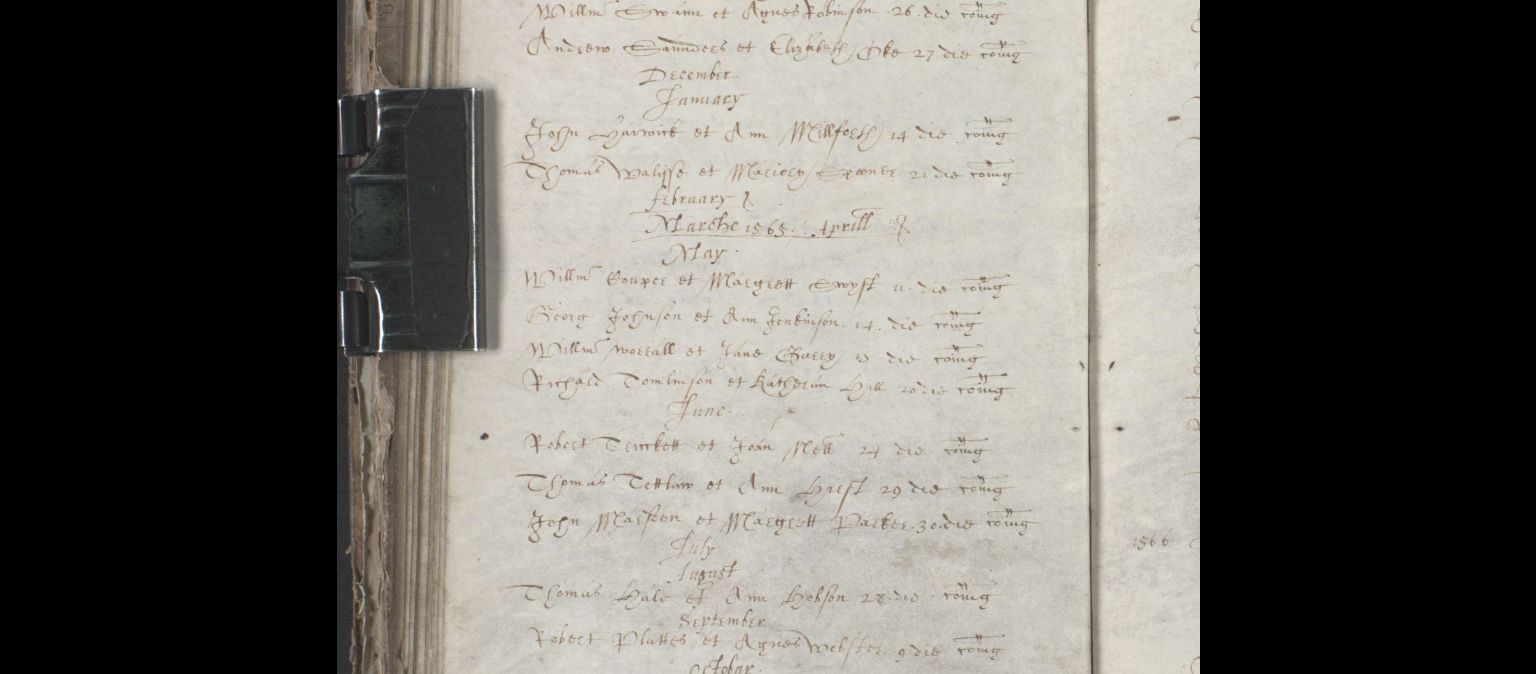 Willm Swann et Agnes Robinson 26 die coniug
Andrew Saunders et Elizabeth Oke 27 die coniug
December
January
John Harwick et Ann Millforth 14 die coniug
Thomas Walysse et Mariory Spooner 21 die coniug
february
Marche 1565. Aprill
May
Willm et Margrett Swyft 11 die coniug
Georg Johnson et Ann Jenkinson 14 die coniug
Willm Worrall et Jane 15 die coniug
Richard Tomlinson et Katheran Hill 20 die coniug
June
Robert Trickett et Joan 24 die coniug
Thomas Tottlaw et Ann Hirst 29 die coniug
John et Margrett Parker 30 die coniug
July
August
1566
Thomas Hale et Ann Hobson 28 die coniug
September
Robert Pluttes et Agnes Webster 9 die coniug
October